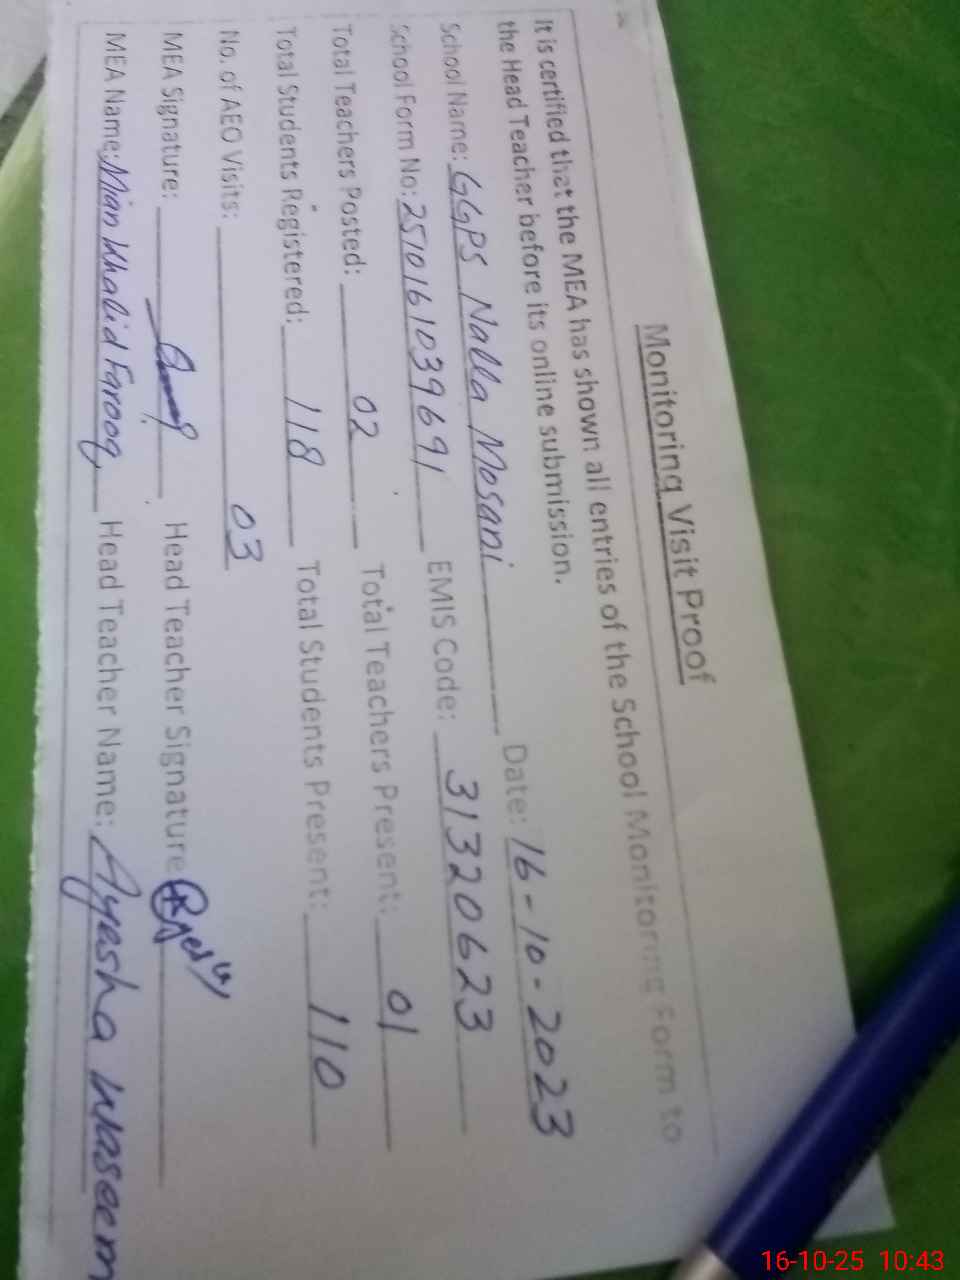 Monitoring Visit Proof
It is certified that the MEA has shown all entries of the School Monitoring Form to
the Head Teacher before its online submission.
School Name: GGPS Nalla Mosani Date: 16-10-2023
School Form No: 251016103969 1 EMIS Code: 31320623
Total Teachers Posted: 02 Total Teachers Present: 01
Total Students Registered: 118 Total Students Present: 110
No. of AEO Visits: 03
MEA Signature: Head Teacher Signature
MEA Name: Mian Khalid Farooq Head Teacher Name: Ayesha Waseem
16-10-25 10:43